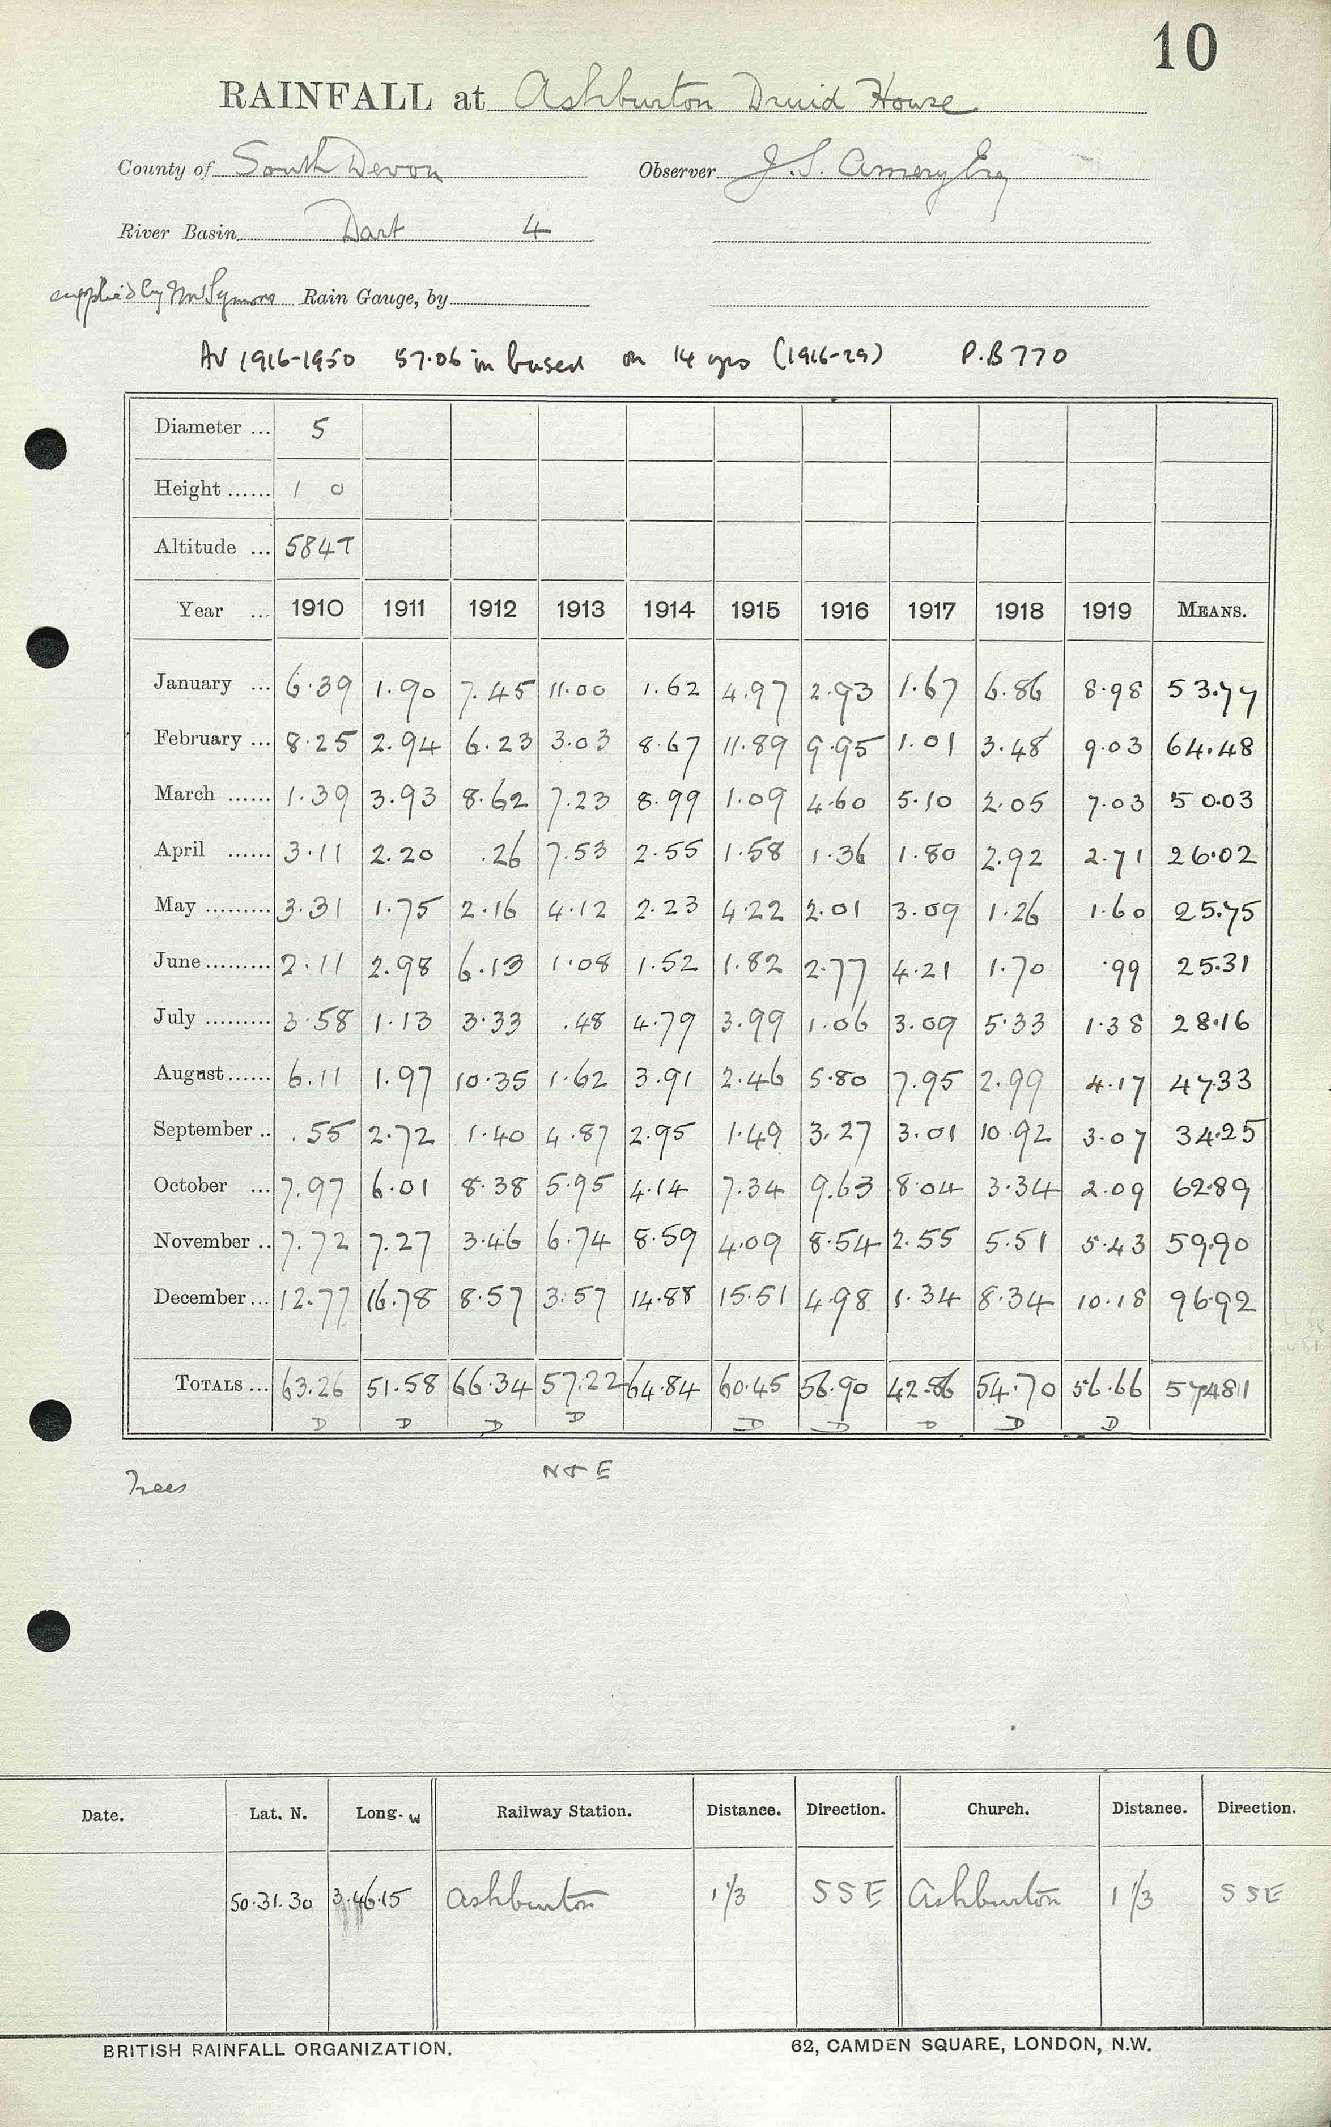 10
RAINFALL at Ashburton Druid House
County of South Devon Observer J.S. Amery Esq
River Basin Dart 4
supplied by Mr Symons Rain Gauge, by
Av 1916-1950 57.06 in based on 14 yrs (1916-29) P.B 770
Diameter ... 5
Height ...... 1 0
Altitude ... 584T
Year ... 1910 1911 1912 1913 1914 1915 1916 1917 1918 1919 MEANS.
January ... 6.39 1.90 7.45 11.00 1.62 4.97 2.93 1.67 6.86 8.98 53.77
February ... 8.25 2.94 6.23 3.03 8.67 11.89 9.95 1.01 3.48 9.03 64.48
March ...... 1.39 3.93 8.62 7.23 8.99 1.09 4.60 5.10 2.05 7.03 50.03
April ...... 3.11 2.20 .26 7.53 2.55 1.58 1.36 1.80 2.92 2.71 26.02
May ......... 3.31 1.75 2.16 4.12 2.23 4.22 2.01 3.09 1.26 1.60 25.75
June ......... 2.11 2.98 6.13 1.08 1.52 1.82 2.77 4.21 1.70 .99 25.31
July ......... 3.58 1.13 3.33 .48 4.79 3.99 1.06 3.09 5.33 1.38 28.16
August ...... 6.11 1.97 10.35 1.62 3.91 2.46 5.80 7.95 2.99 4.17 47.33
September .. .55 2.72 1.40 4.87 2.95 1.49 3.27 3.01 10.92 3.07 34.25
October ... 7.97 6.01 8.38 5.95 4.14 7.34 9.63 8.04 3.34 2.09 62.89
November .. 7.72 7.27 3.46 6.74 8.59 4.09 8.54 2.55 5.51 5.43 59.90
December ... 12.77 16.78 8.57 3.57 14.88 15.51 4.98 1.34 8.34 10.18 96.92
TOTALS ... 63.26 51.58 66.34 57.22 64.84 60.45 56.90 42.86 54.70 56.66 574.81
D D D D D D D D D
Trees N & E
Date. Lat. N. Long. W Railway Station. Distance. Direction. Church. Distance. Direction.
50.31.30 3.46.15 Ashburton 1 1/3 SSE Ashburton 1 1/3 SSE
BRITISH RAINFALL ORGANIZATION. 62, CAMDEN SQUARE, LONDON, N.W.